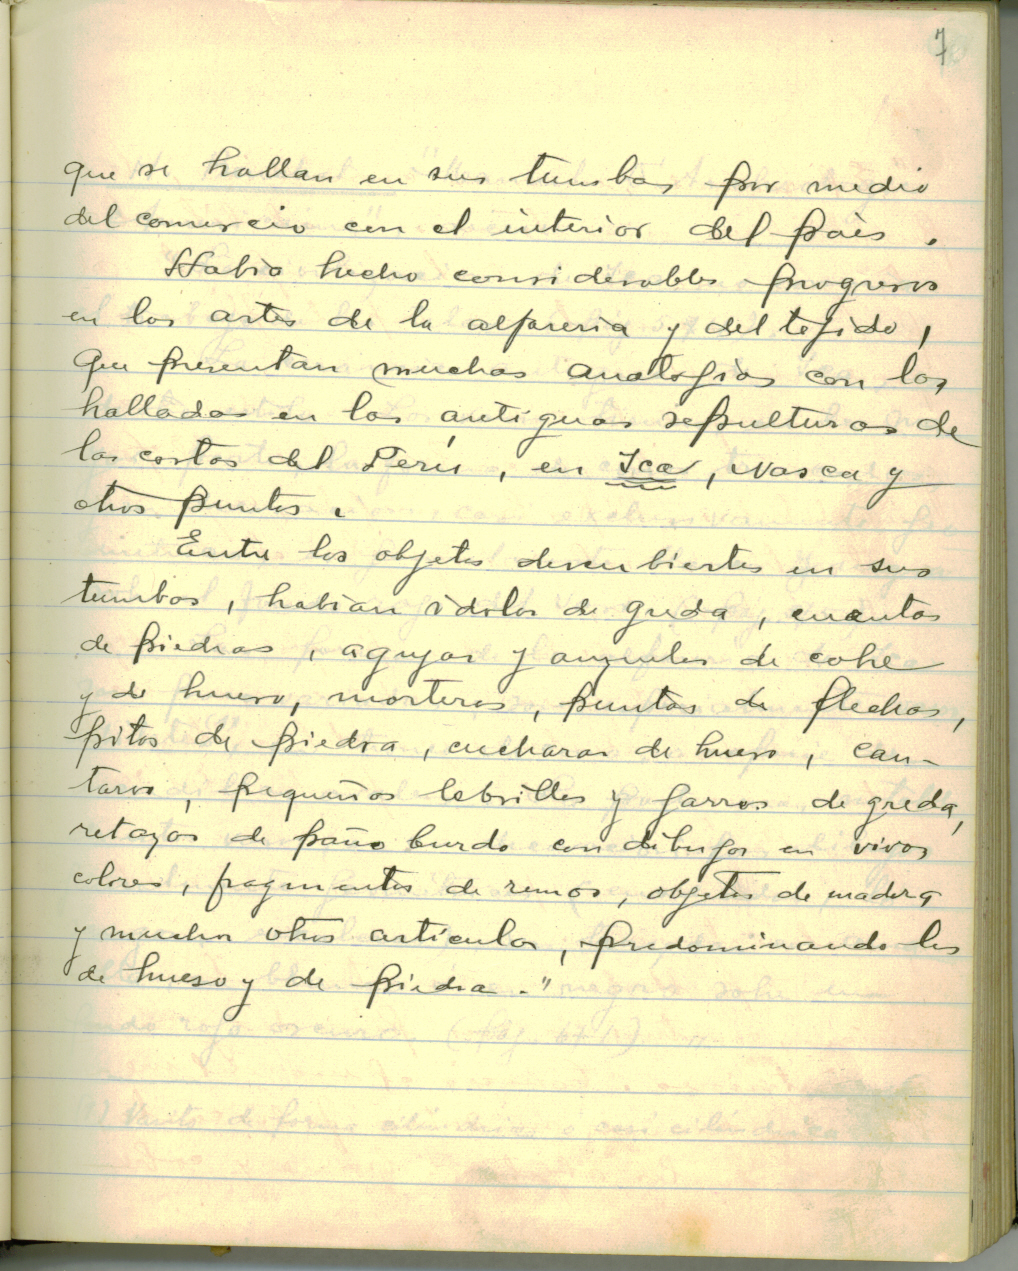 7
que se hallan en sus tumbas por medio
del comercio con el interior del país.
Habia hecho considerables progresos
en las artes de la alfareria y del tejido,
que presentan muchas analogias con las
halladas en las antiguas sepulturas de
las costas del Perú, en Ica, Nasca y
otros puntos.
Entre los objetos descubiertos en sus
tumbas, habian idolos de greda, cuentas
de piedras, agujas y anzuelos de cobre
y de hueso, morteros, puntas de flechas,
pitos de piedra, cucharas de hueso, can-
taros, pequeños lebrillos y jarros de greda,
retazos de paño burdo con dibujos en vivos
colores, fragmentos de remos, objetos de madera
y muchos otros articulos, predominando los
de hueso y de piedra."